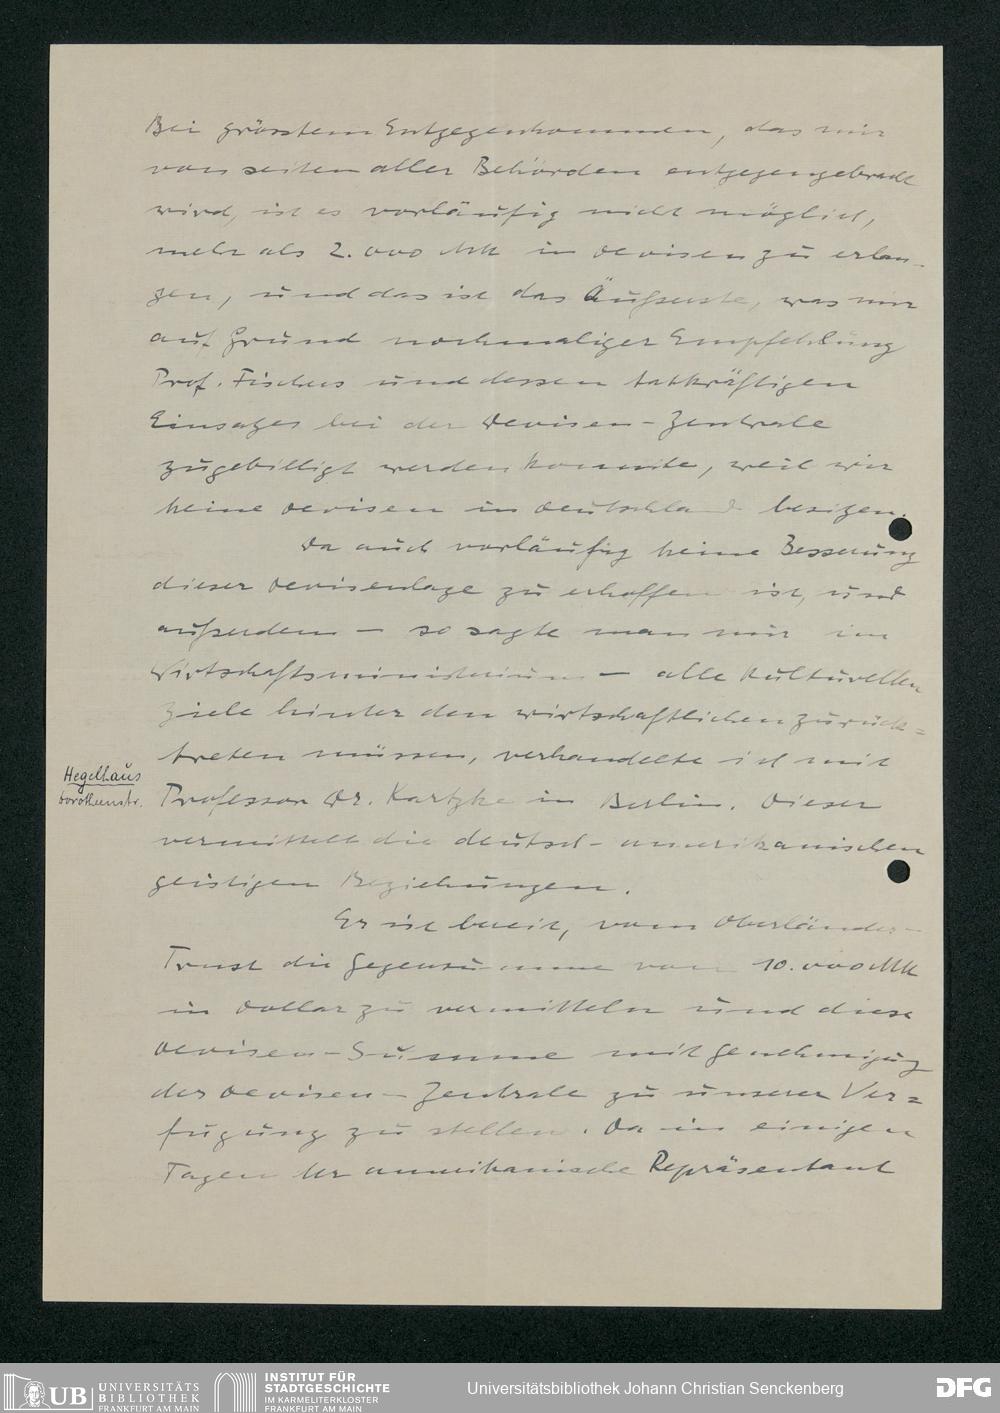 Bei grösstem Entgegenkommen, das mir
von seiten aller Behörden entgegengebracht
wird, ist es vorläufig nicht möglich,
mehr als 2.000 Mk in Devisen zu erlan-
gen, und das ist das Äußerste, was mir
auf Grund nochmaliger Empfehlung
Prof. Fischers und dessen tatkräftigen
Einsatzes bei der Devisen-Zentrale
zugebilligt werden konnte, weil wir
keine Devisen in Deutschland besitzen.
Da auch vorläufig keine Besserung
dieser Devisenlage zu erhoffen ist, und
außerdem – so sagte man mir im
Wirtschaftsministerium – alle kulturellen
Ziele hinter den wirtschaftlichen zurück=
treten müssen, verhandelte ich mit
Hegelhaus
Dorotheenstr.
Professor Dr. Kartzke in Berlin. Dieser
vermittelt die deutsch-amerikanischen
geistigen Beziehungen.
Er ist bereit, vom Oberländer-
Trust die Gegensumme von 10.000 Mk
in Dollar zu vermitteln und diese
Devisen-Summe mit Genehmigung
der Devisen-Zentrale zu unserer Ver=
fugung zu stellen. Da in einigen
Tagen der amerikanische Repräsentant
UB UNIVERSITÄTS
BIBLIOTHEK
FRANKFURT AM MAIN
INSTITUT FÜR
STADTGESCHICHTE
IM KARMELITERKLOSTER
FRANKFURT AM MAIN
Universitätsbibliothek Johann Christian Senckenberg
DFG